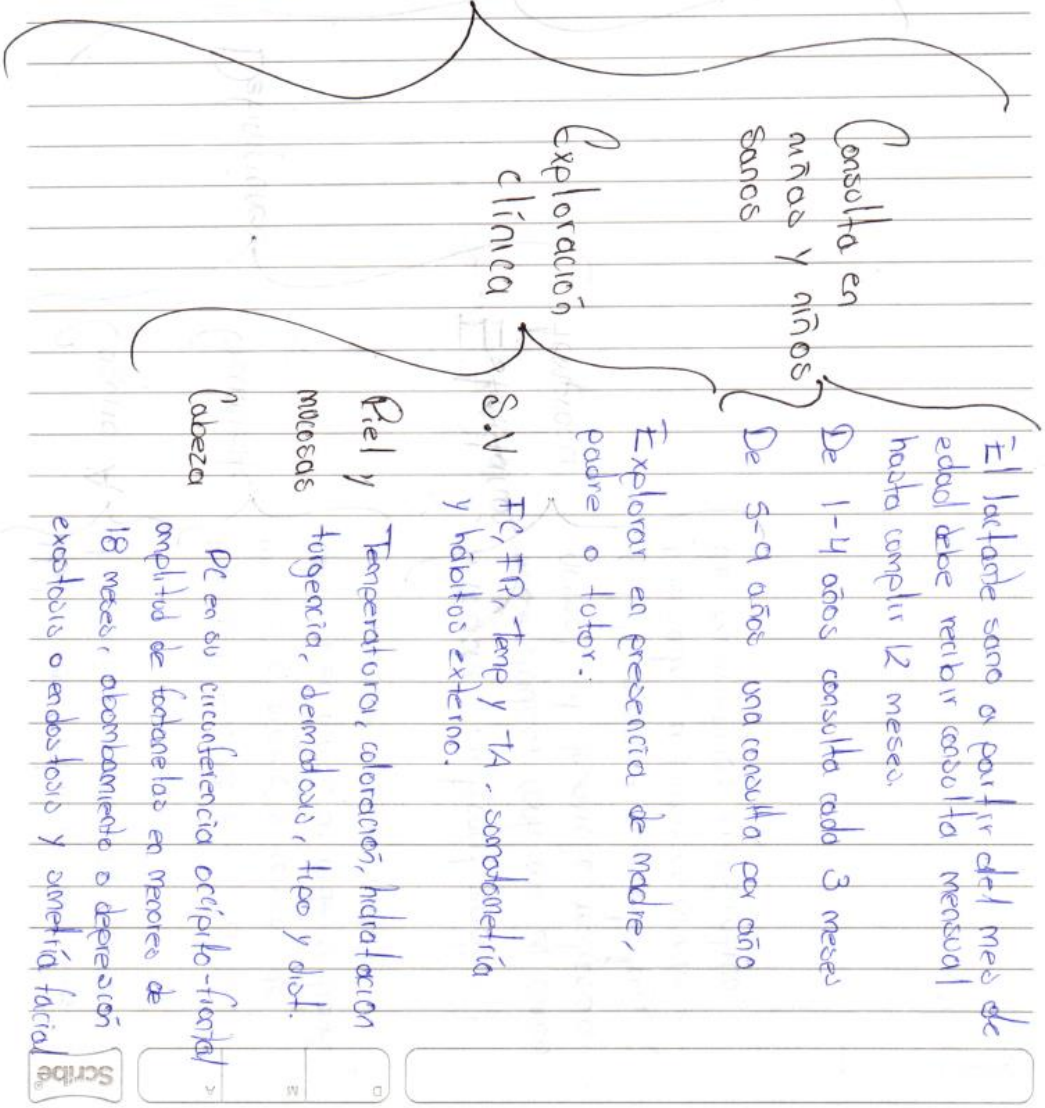 Consulta en
niñas y niños
sanos
El lactante sano a partir del mes de
edad debe recibir consulta mensual
hasta cumplir 12 meses.
De 1-4 años consulta cada 3 meses
De 5-9 años una consulta por año
Exploración
clínica
Explorar en presencia de madre,
padre o tutor:
S.V
FC, FR, Temp y TA, somatometría
y hábitos externo.
Piel y
mucosas
Temperatura, coloración, hidratación
turgencia, dermatosis, tipo y dist.
Cabeza
PC en su circunferencia occípito-frontal
amplitud de fontanelas en menores de
18 meses, abombamiento o depresión
exostosis o endostosis y simetría facial
Scribe
D
M
A